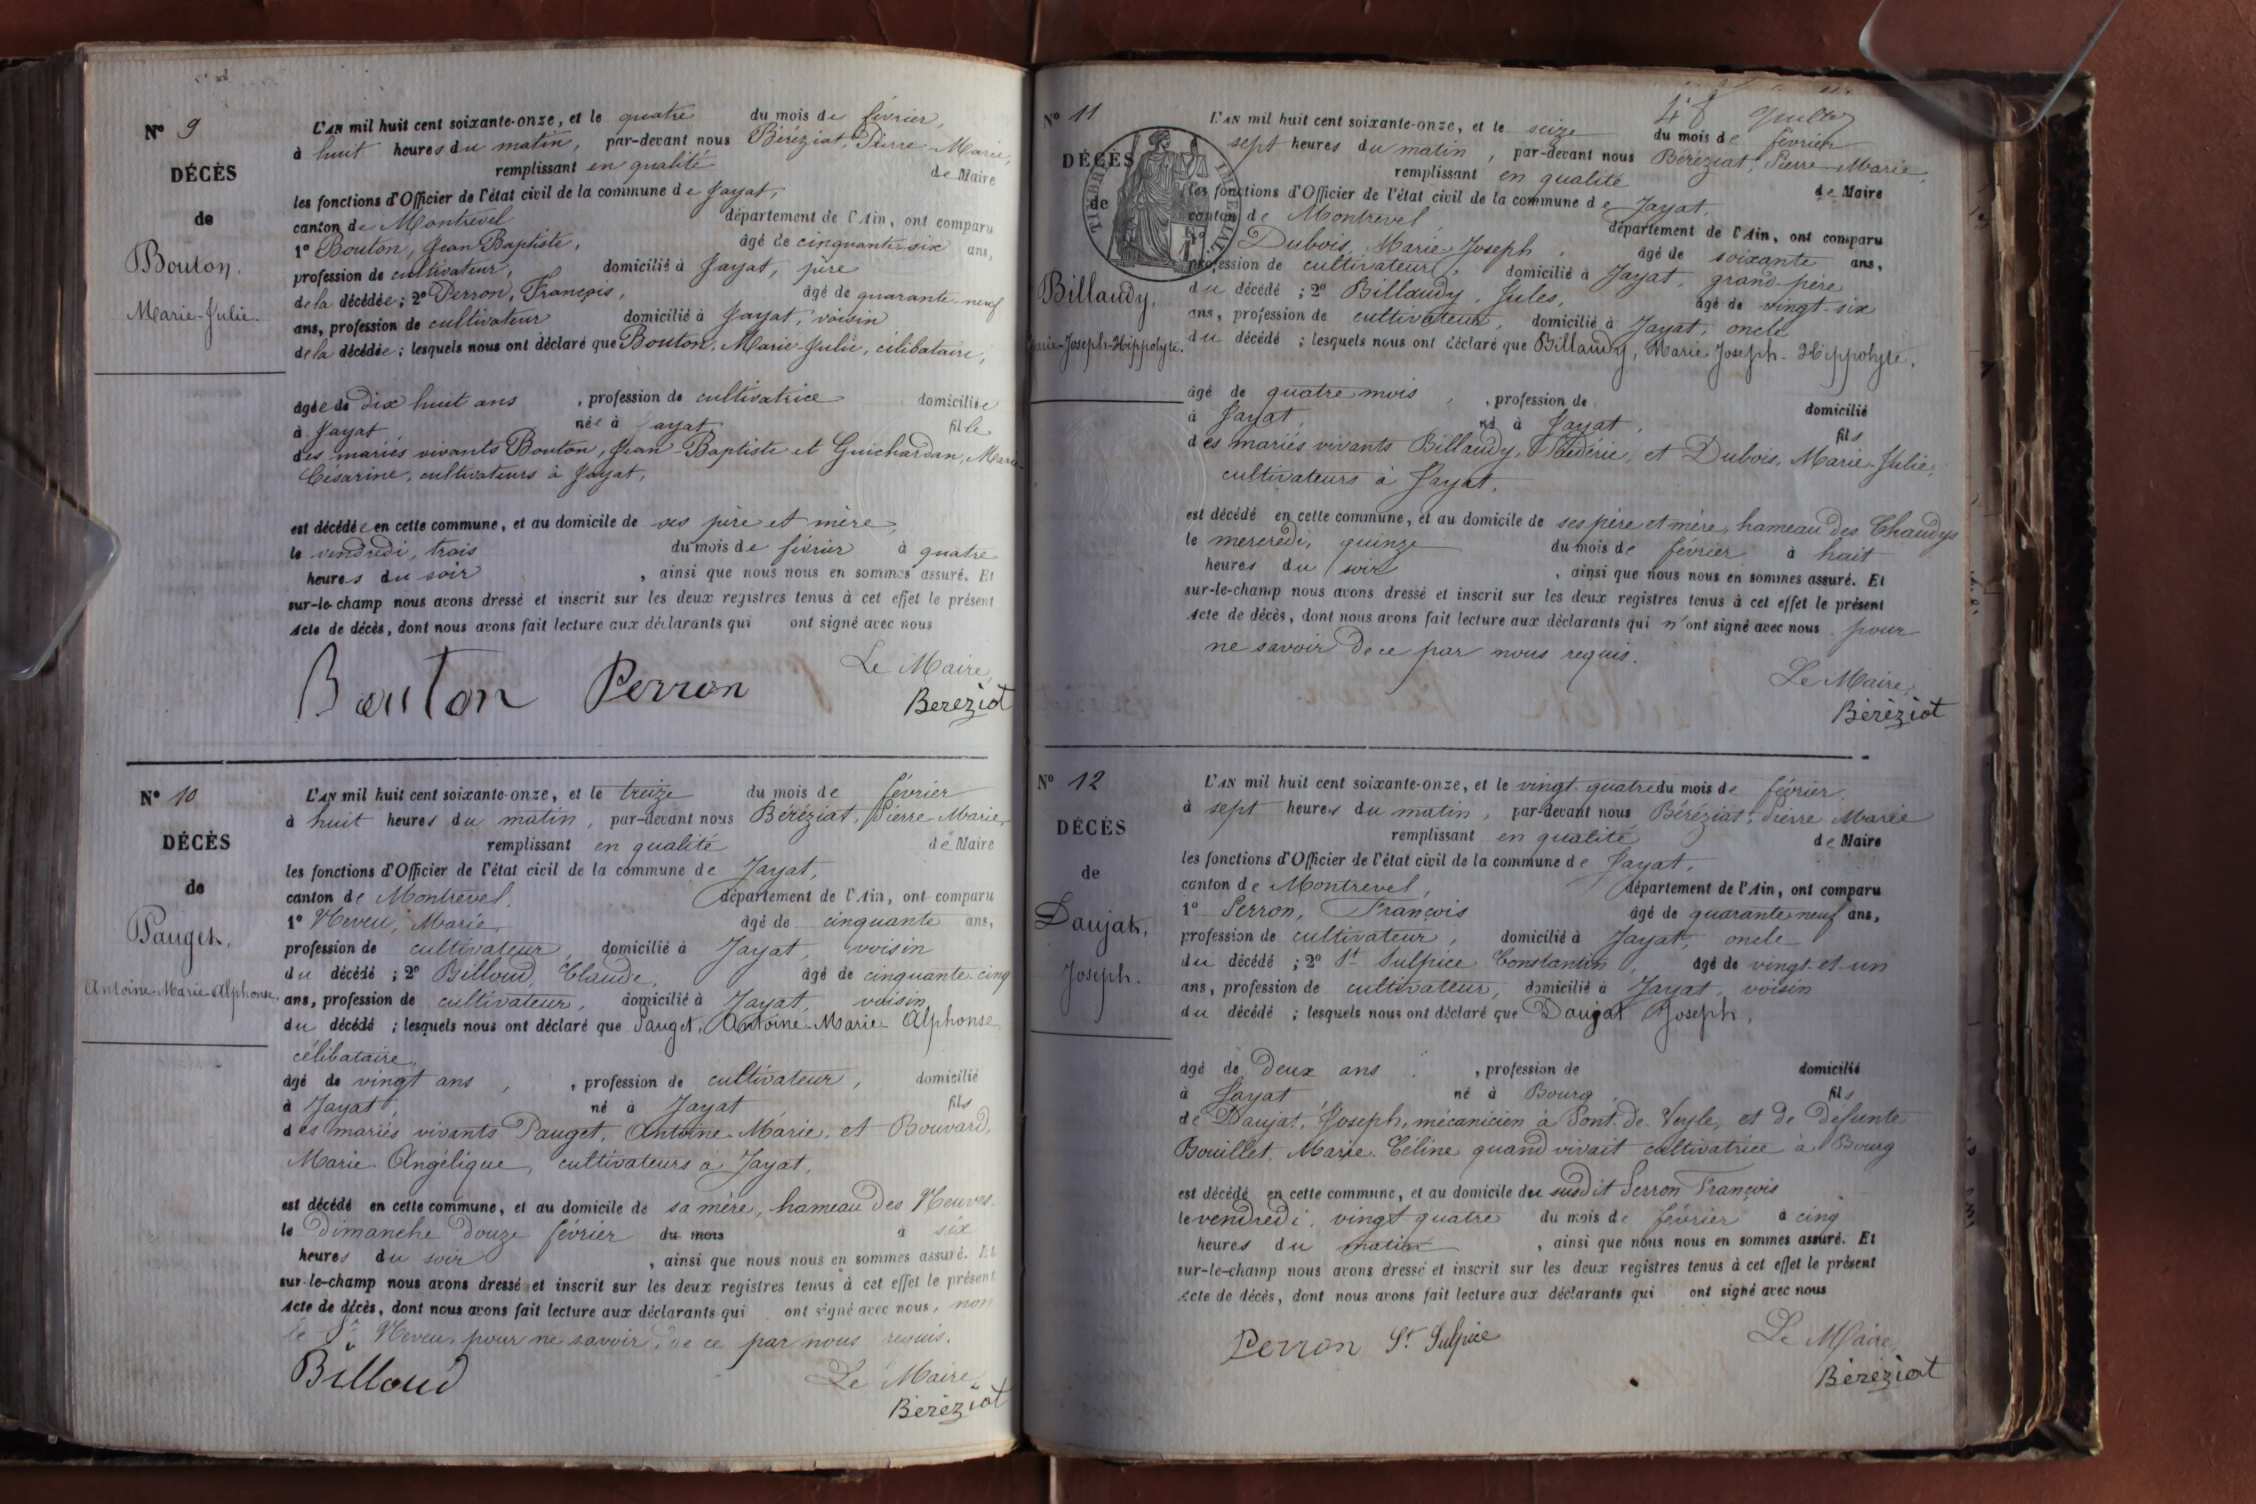 Nº 9
DÉCÈS
de
Bouton,
Marie-Julie.
L'AN mil huit cent soixante-onze, et le quatre du mois de février,
à huit heures du matin, par-devant nous Béréziat, Pierre Marie,
remplissant en qualité de Maire
les fonctions d'Officier de l'état civil de la commune de Jayat,
canton de Montrevel département de l'Ain, ont comparu
1º Bouton, Jean Baptiste, âgé de cinquante-six ans,
profession de cultivateur, domicilié à Jayat, père
de la décédée ; 2º Perron, François, âgé de quarante-neuf
ans, profession de cultivateur domicilié à Jayat, voisin
de la décédée ; lesquels nous ont déclaré que Bouton, Marie-Julie, célibataire,
âgée de dix huit ans , profession de cultivatrice domiciliée
à Jayat née à Jayat fille
des mariés vivants Bouton, Jean-Baptiste et Guichardan, Marie-
Césarine, cultivateurs à Jayat,
est décédée en cette commune, et au domicile de ses père et mère,
le vendredi, trois du mois de février à quatre
heures du soir , ainsi que nous nous en sommes assuré. Et
sur-le-champ nous avons dressé et inscrit sur les deux registres tenus à cet effet le présent
Acte de décès, dont nous avons fait lecture aux déclarants qui ont signé avec nous
Le Maire,
Bouton Perron Béréziat
Nº 10
DÉCÈS
de
Pauget,
Antoine-Marie-Alphonse.
L'AN mil huit cent soixante-onze, et le treize du mois de février
à huit heures du matin, par-devant nous Béréziat, Pierre Marie,
remplissant en qualité de Maire
les fonctions d'Officier de l'état civil de la commune de Jayat,
canton de Montrevel, département de l'Ain, ont comparu
1º Neveu, Marie, âgé de cinquante ans,
profession de cultivateur, domicilié à Jayat, voisin
du décédé ; 2º Billoud, Claude, âgé de cinquante-cinq
ans, profession de cultivateur, domicilié à Jayat, voisin
du décédé ; lesquels nous ont déclaré que Pauget, Antoine-Marie Alphonse
célibataire,
âgé de vingt ans , , profession de cultivateur, domicilié
à Jayat né à Jayat fils
des mariés vivants Pauget, Antoine-Marie, et Bouvard,
Marie-Angélique, cultivateurs à Jayat,
est décédé en cette commune, et au domicile de sa mère, hameau des Neuves.
le dimanche douze février du mois à six
heures du soir , ainsi que nous nous en sommes assuré. Et
sur-le-champ nous avons dressé et inscrit sur les deux registres tenus à cet effet le présent
Acte de décès, dont nous avons fait lecture aux déclarants qui ont signé avec nous, non
le Sr Neveu, pour ne savoir, de ce par nous requis.
Le Maire,
Billoud Béréziat
Nº 11
DÉCÈS
de
TIMBRE IMPÉRIAL
Billaudy,
Marie-Joseph-Hippolyte.
L'AN mil huit cent soixante-onze, et le seize du mois de février
sept heures du matin , par-devant nous Béréziat, Pierre Marie,
remplissant en qualité de Maire
les fonctions d'Officier de l'état civil de la commune de Jayat,
canton de Montrevel département de l'Ain, ont comparu
1º Dubois, Marie-Joseph , âgé de soixante ans,
profession de cultivateur, domicilié à Jayat, grand-père
du décédé ; 2º Billaudy, Jules, âgé de vingt-six
ans, profession de cultivateur, domicilié à Jayat, oncle
du décédé ; lesquels nous ont déclaré que Billaudy, Marie Joseph-Hippolyte,
âgé de quatre mois , , profession de domicilié
à Jayat, né à Jayat, fils
des mariés vivants Billaudy, Frédéric, et Dubois, Marie-Julie,
cultivateurs à Jayat,
est décédé en cette commune, et au domicile de ses père et mère, hameau des Chaudys
le mercredi, quinze du mois de février à huit
heures du soir , ainsi que nous nous en sommes assuré. Et
sur-le-champ nous avons dressé et inscrit sur les deux registres tenus à cet effet le présent
Acte de décès, dont nous avons fait lecture aux déclarants qui n'ont signé avec nous pour
ne savoir de ce par nous requis.
Le Maire,
Béréziat
Nº 12
DÉCÈS
de
Daujat,
Joseph.
L'AN mil huit cent soixante-onze, et le vingt-quatre du mois de février,
à sept heures du matin, par-devant nous Béréziat, Pierre Marie
remplissant en qualité de Maire
les fonctions d'Officier de l'état civil de la commune de Jayat,
canton de Montrevel, département de l'Ain, ont comparu
1º Perron, François âgé de quarante neuf ans,
profession de cultivateur, domicilié à Jayat, oncle
du décédé ; 2º St Sulpice Constantin, âgé de vingt-et-un
ans, profession de cultivateur, domicilié à Jayat, voisin
du décédé ; lesquels nous ont déclaré que Daujat Joseph,
âgé de deux ans , profession de domicilié
à Jayat né à Bourg, fils
de Daujat, Joseph, mécanicien à Pont-de-Veyle, et de defunte
Bouillet, Marie-Céline quand vivait cultivatrice à Bourg
est décédé en cette commune, et au domicile du susdit Perron François
le vendredi, vingt quatre du mois de février à cinq
heures du matin , ainsi que nous nous en sommes assuré. Et
sur-le-champ nous avons dressé et inscrit sur les deux registres tenus à cet effet le présent
Acte de décès, dont nous avons fait lecture aux déclarants qui ont signé avec nous
Le Maire,
Perron St Sulpice Béréziat